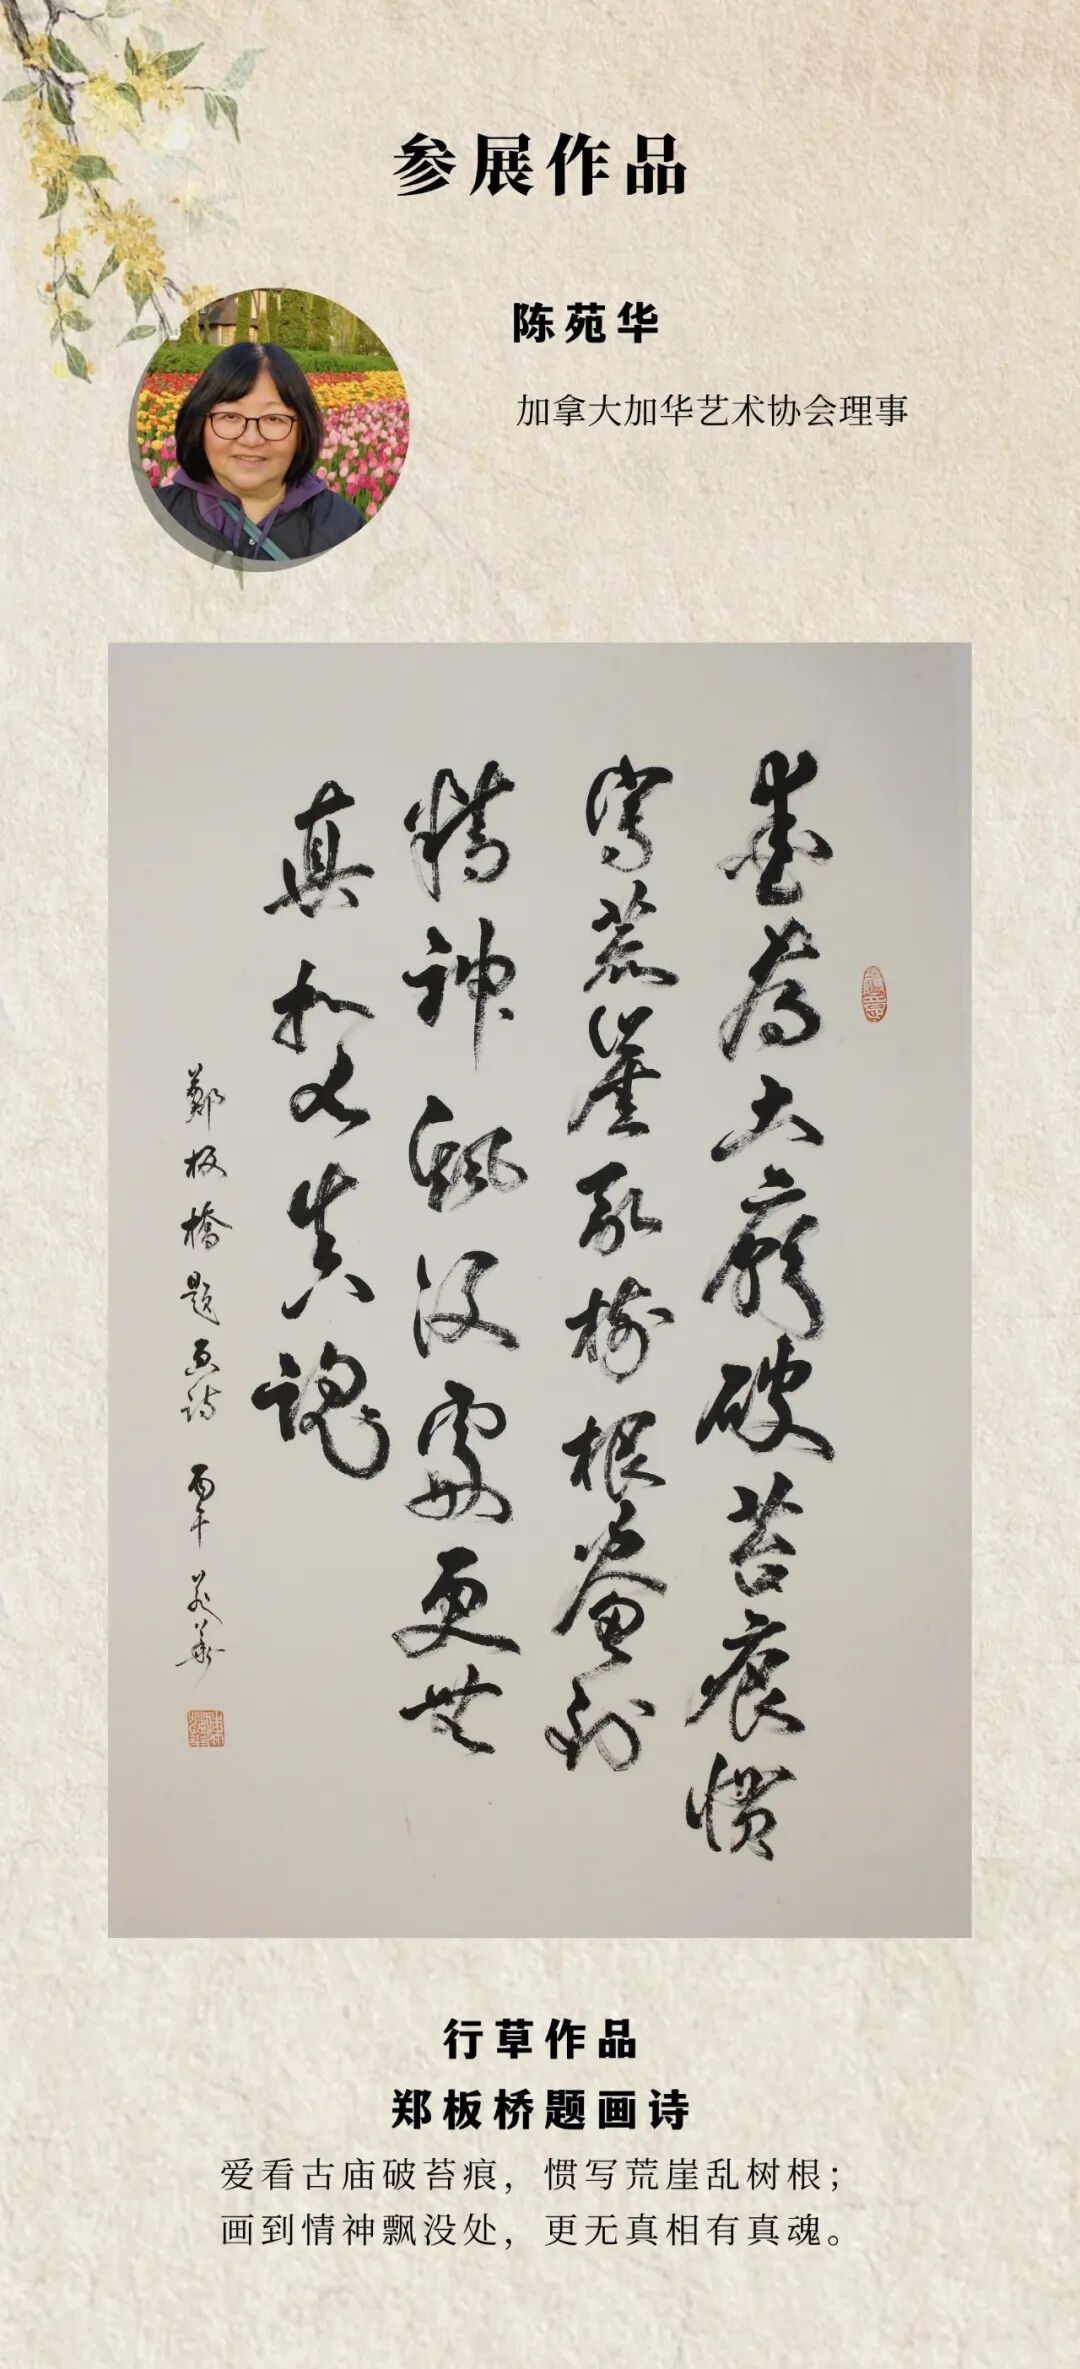 参展作品
陈苑华
加拿大加华艺术协会理事
爱看古庙破苔痕惯
写荒崖乱树根画到
情神飘没处更无
真相有真魂
郑板桥题画诗 丙午 苑华
行草作品
郑板桥题画诗
爱看古庙破苔痕，惯写荒崖乱树根；
画到情神飘没处，更无真相有真魂。